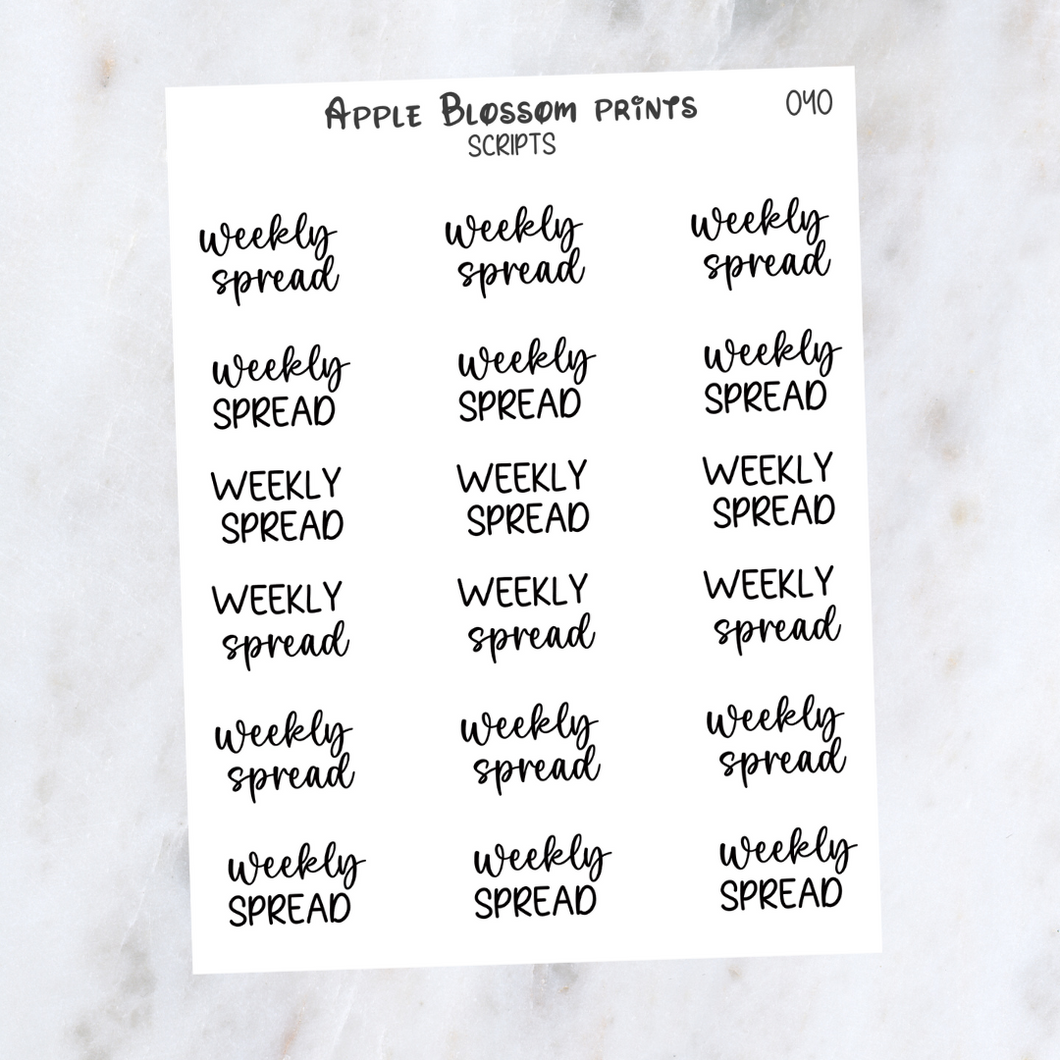 Apple Blossom prints 040
SCRIPTS
weekly weekly weekly
spread spread spread
weekly weekly weekly
SPREAD SPREAD SPREAD
WEEKLY WEEKLY WEEKLY
SPREAD SPREAD SPREAD
WEEKLY WEEKLY WEEKLY
spread spread spread
weekly weekly weekly
spread spread spread
weekly weekly weekly
SPREAD SPREAD SPREAD